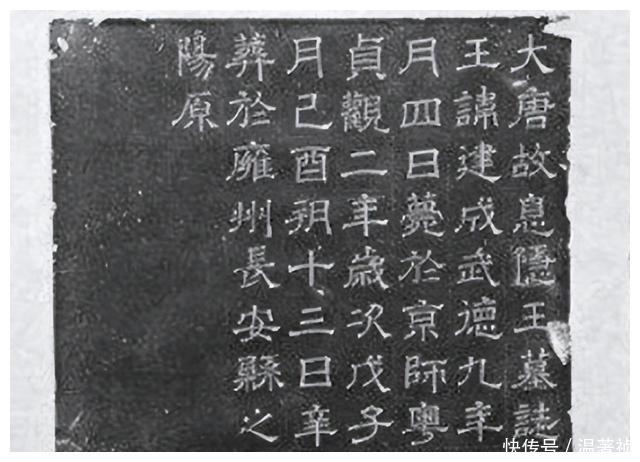 大唐故息隱王墓誌
王諱建成武德九年
月四日薨於京師粵
貞觀二年歲次戊子
月己酉朔十三日辛
葬於雍州長安縣之
陽原
快传号 / 温著